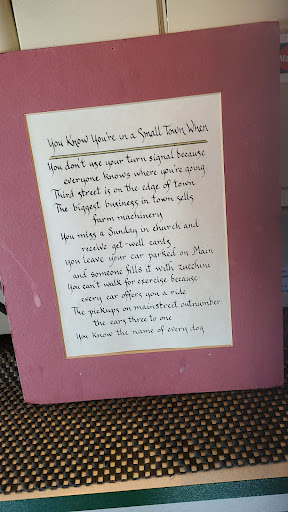 You Know You're in a Small Town When
You don't use your turn signal because
everyone knows where you're going
Third street is on the edge of town
The biggest business in town sells
farm machinery
You miss a Sunday in church and
receive get-well cards
You leave your car parked on Main
and someone fills it with zucchini
You can't walk for exercise because
every car offers you a ride
The pickups on mainstreet outnumber
the cars three to one
You know the name of every dog